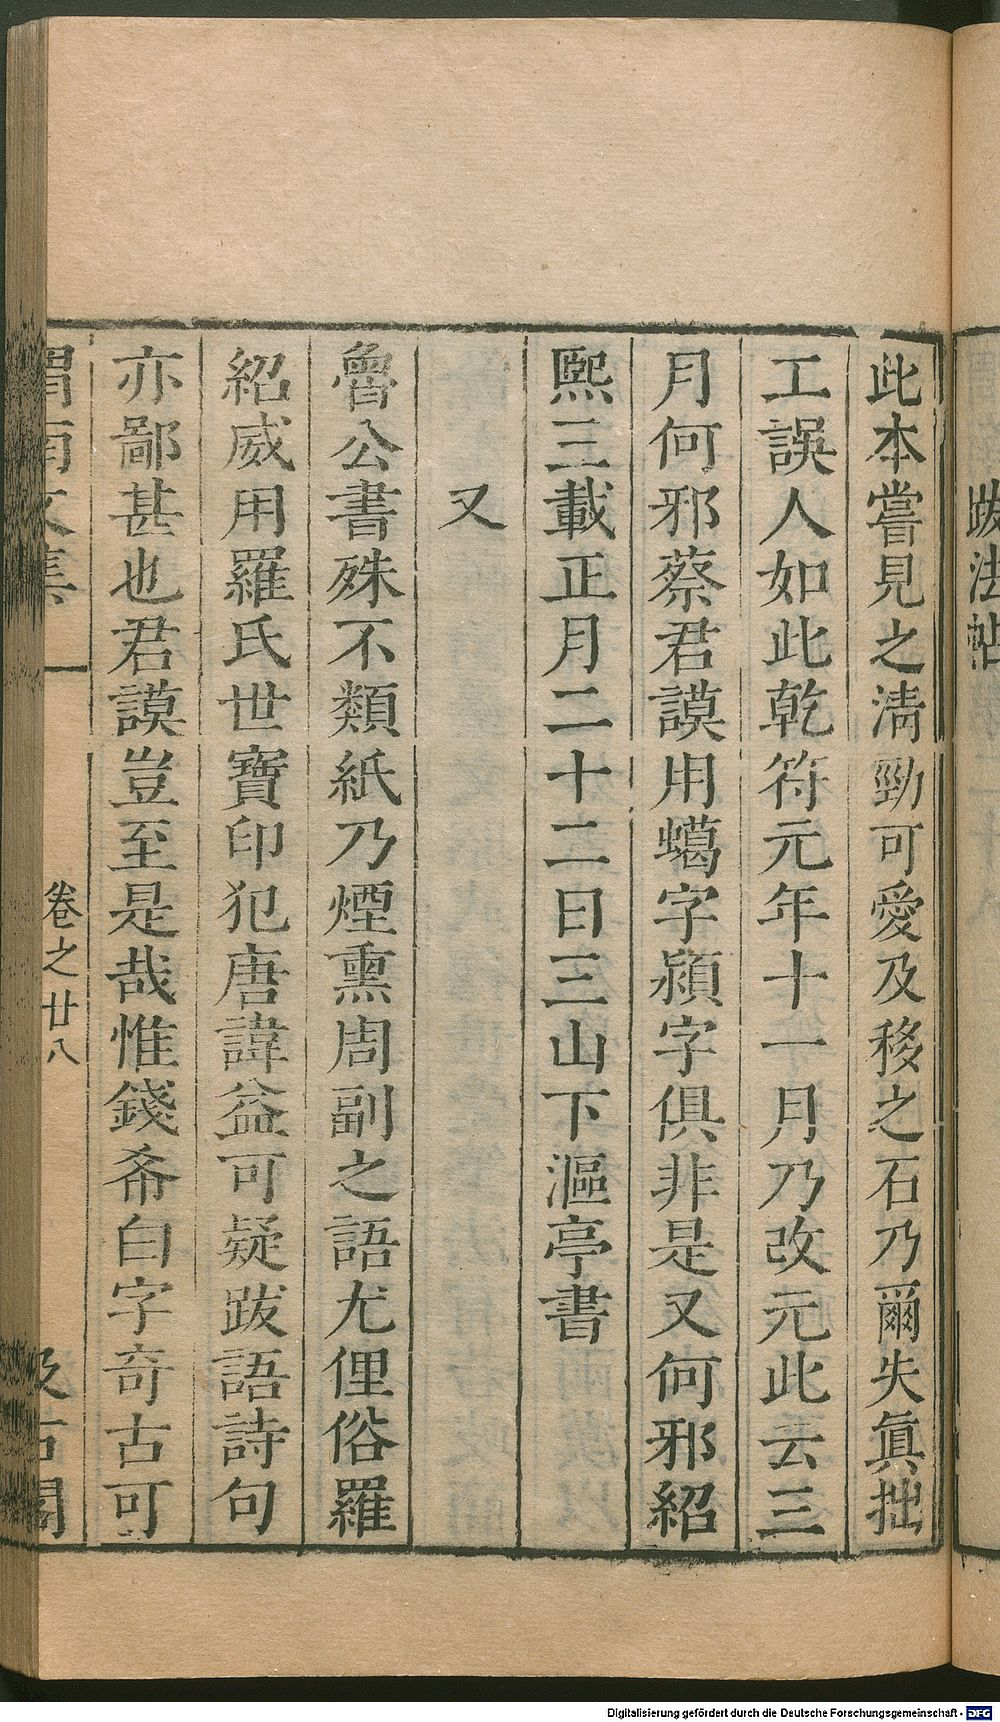 跋法帖
此本嘗見之淸勁可愛及移之石乃爾失眞拙
工誤人如此乾符元年十一月乃改元此云三
月何邪蔡君謨用蠇字潁字俱非是又何邪紹
熙三載正月二十二日三山下漚亭書
又
魯公書殊不類紙乃煙熏周副之語尤俚俗羅
紹威用羅氏世寶印犯唐諱益可疑跋語詩句
亦鄙甚也君謨豈至是哉惟錢希白字奇古可
渭南文集 卷之廿八 汲古閣
Digitalisierung gefördert durch die Deutsche Forschungsgemeinschaft - DFG